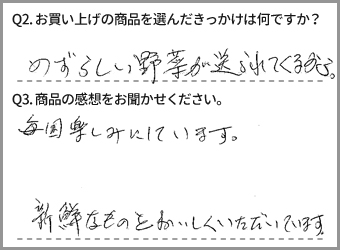 Q2. お買い上げの商品を選んだきっかけは何ですか？
めずらしい野菜が送られてくるから。
Q3. 商品の感想をお聞かせください。
毎回楽しみにしています。
新鮮なものをおいしくいただいています